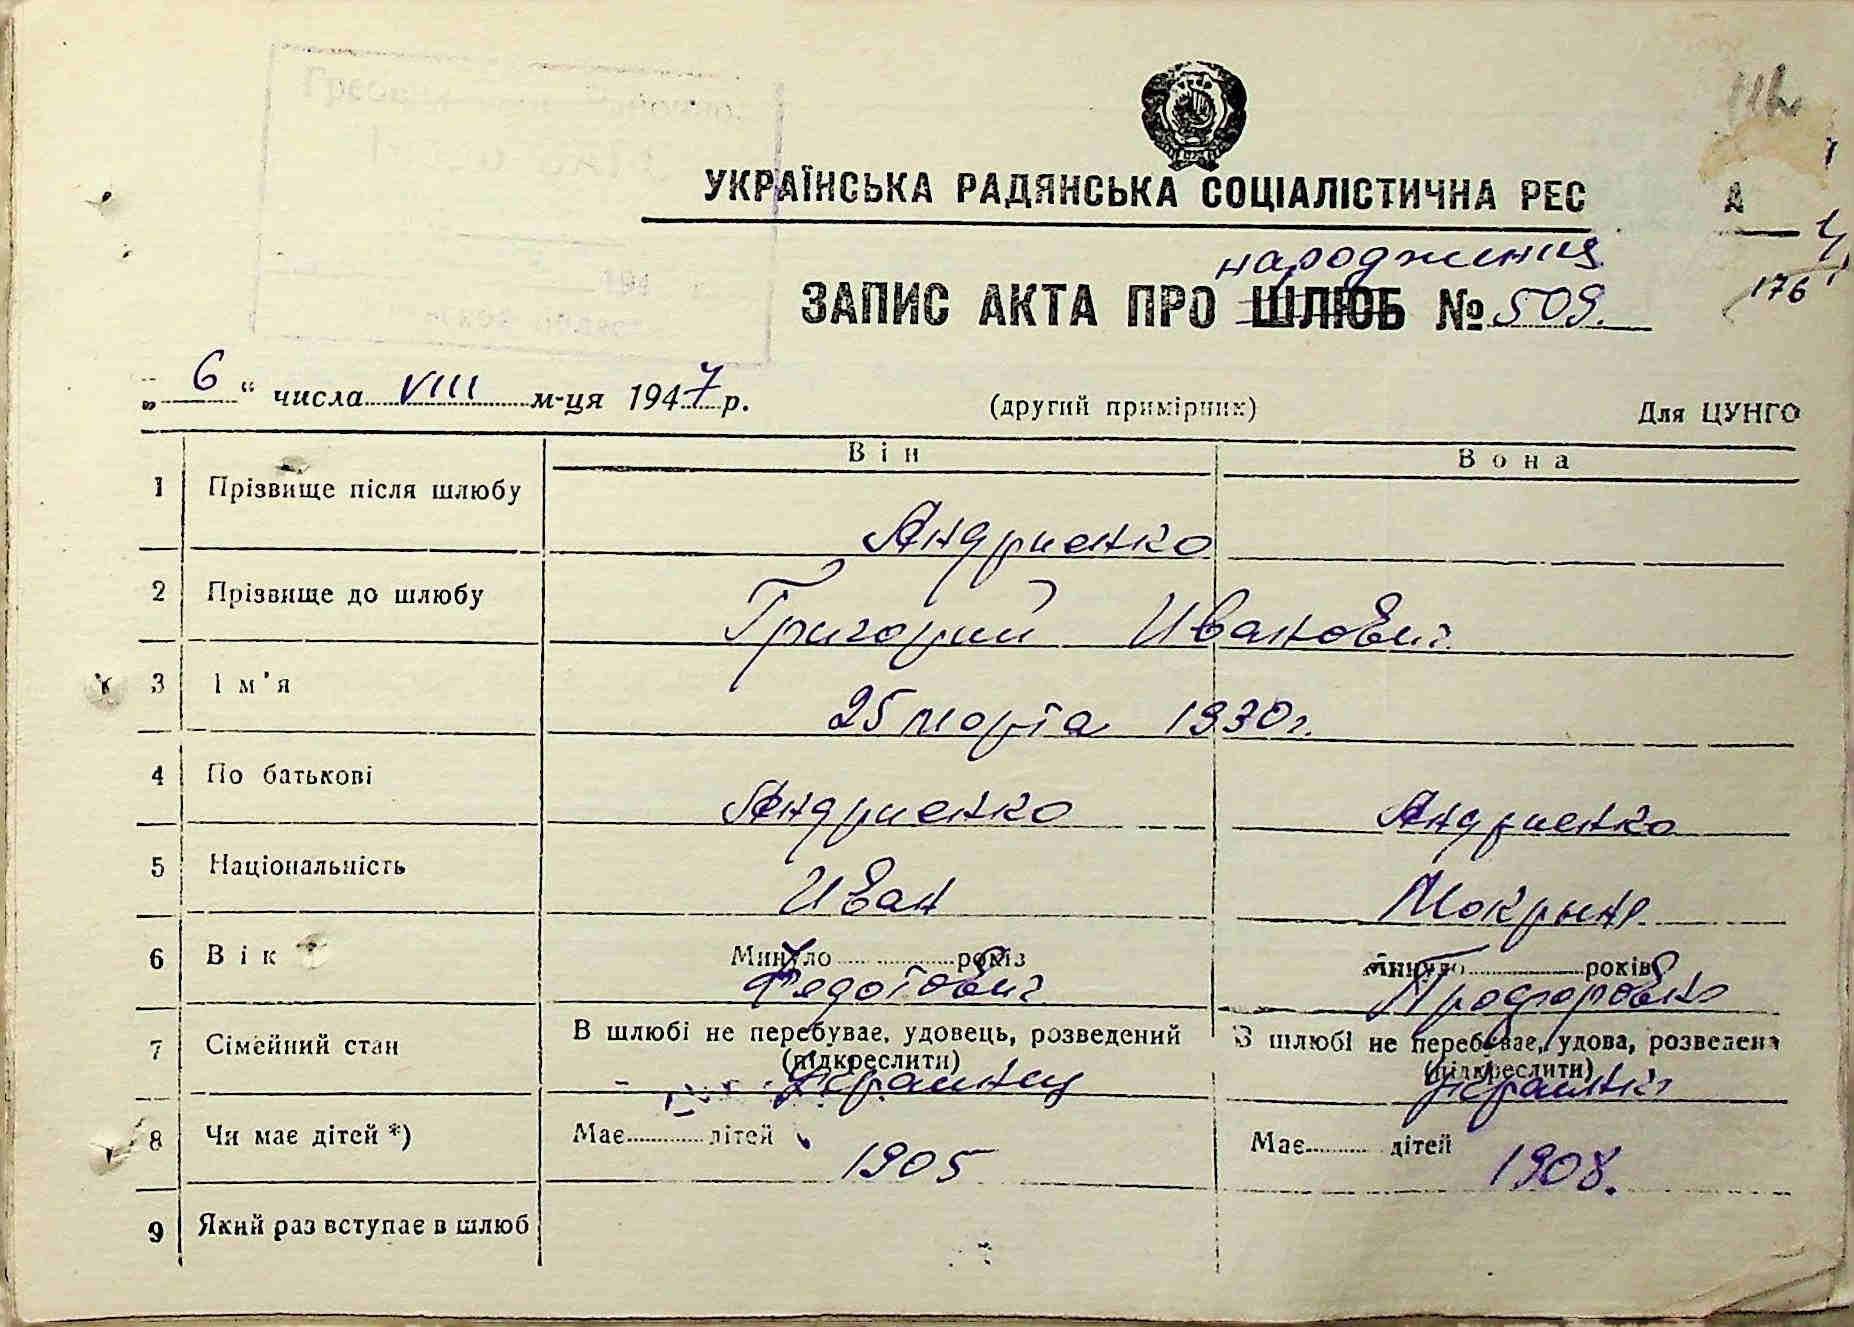 УКРАЇНСЬКА РАДЯНСЬКА СОЦІАЛІСТИЧНА РЕС А
народження
176
ЗАПИС АКТА ПРО ШЛЮБ № 509.
„ 6 “ числа VIII м-ця 1947 р. (другий примірник) Для ЦУНГО
Він Вона
1 Прізвище після шлюбу
Андриенко
2 Прізвище до шлюбу
Григорий Иванович.
3 Ім'я
25 марта 1930 г.
4 По батькові
Андриенко Андриенко
5 Національність
Иван Мокрына
6 Вік Минуло років Минуло років
Федотович Прохоровна
7 Сімейний стан В шлюбі не перебуває, удовець, розведений В шлюбі не перебуває, удова, розведена
(підкреслити) (підкреслити)
украинец украинка
8 Чи має дітей *) Має дітей Має дітей
1905 1908.
9 Який раз вступає в шлюб